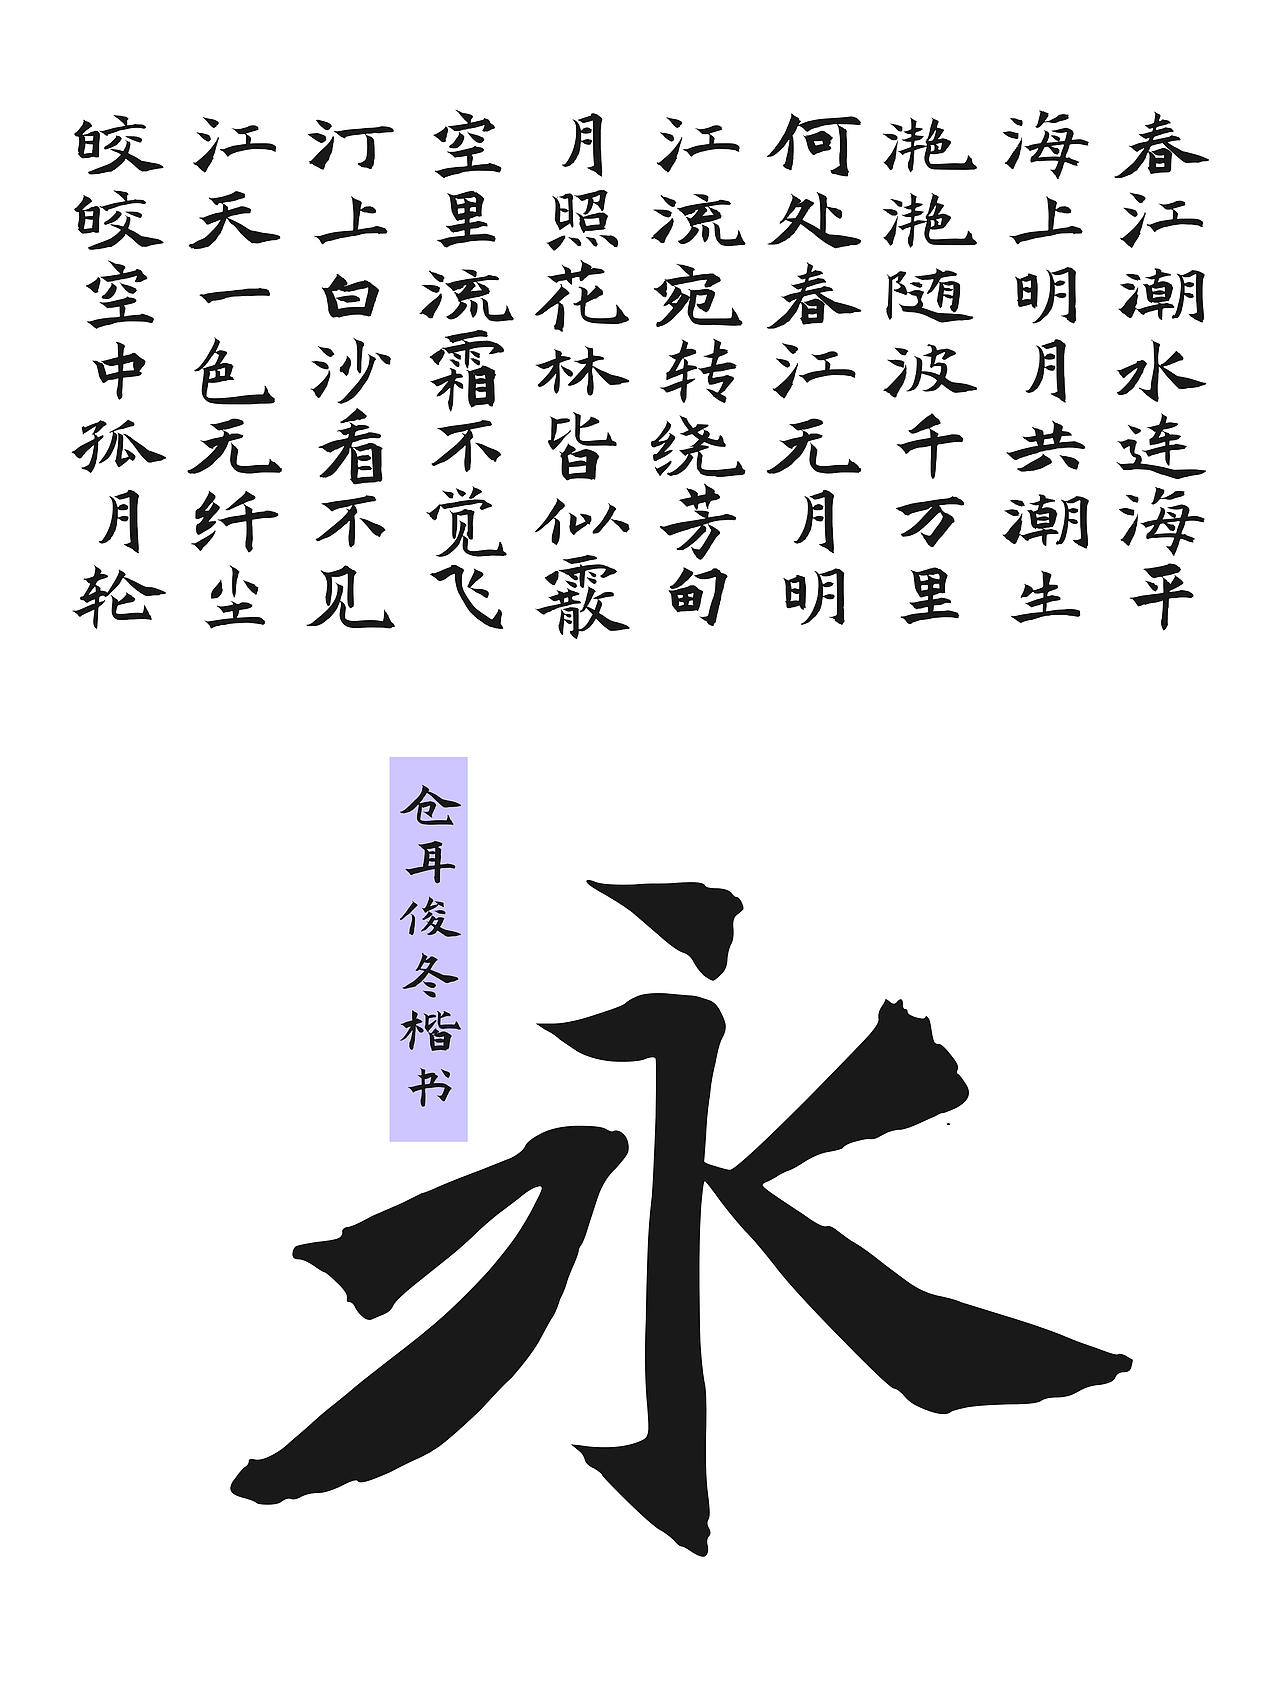 春江潮水连海平
海上明月共潮生
滟滟随波千万里
何处春江无月明
江流宛转绕芳甸
月照花林皆似霰
空里流霜不觉飞
汀上白沙看不见
江天一色无纤尘
皎皎空中孤月轮
仓耳俊冬楷书
永